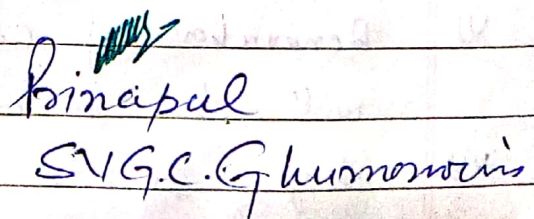 Principal
SVG.C. Ghumarwin